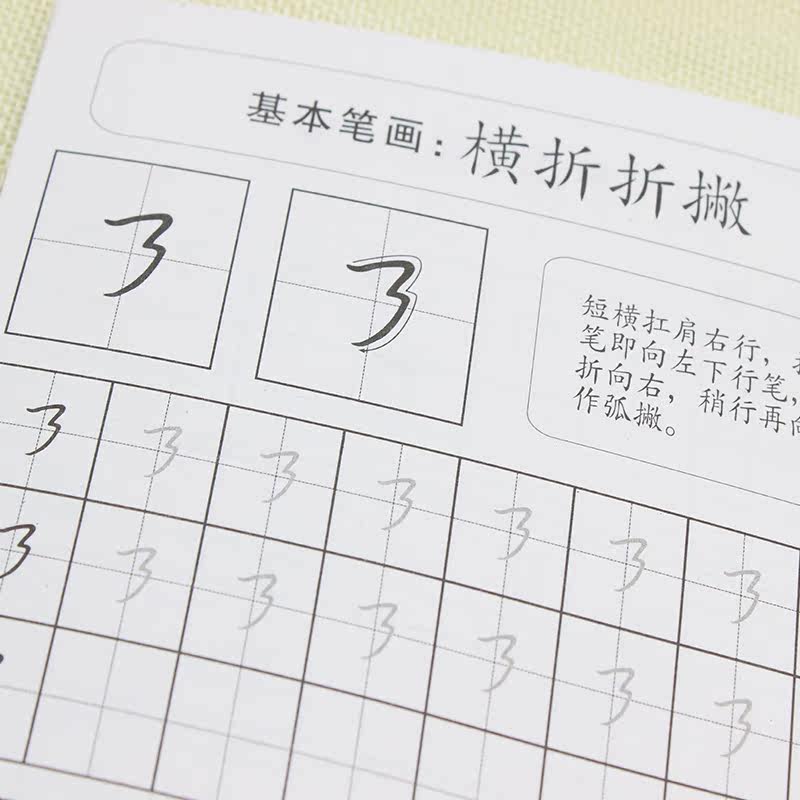 基本笔画：横折折撇
短横扛肩右行，
笔即向左下行笔，
折向右，稍行再向
作弧撇。